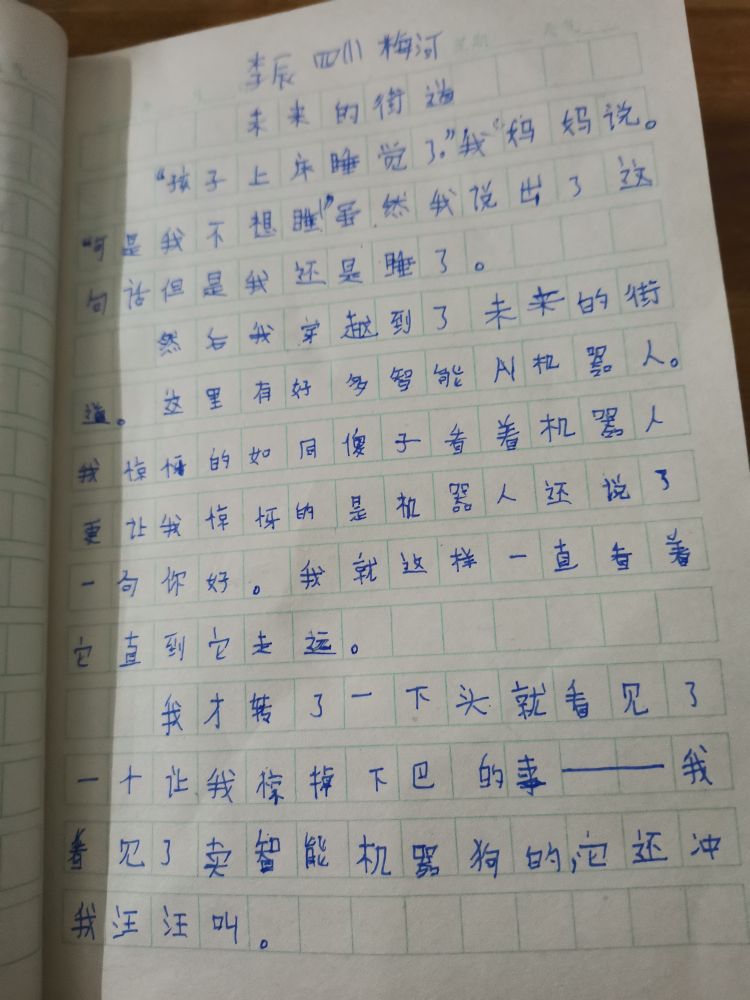 李辰 四川 梅河
未来的街道
“孩子上床睡觉了。”我“妈妈说。
“可是我不想睡!”虽然我说出了这
句话但是我还是睡了。
然后我穿越到了未来的街
道。这里有好多智能AI机器人。
我惊讶的如同傻子看着机器人
更让我惊讶的是机器人还说了
一句你好。我就这样一直看着
它直到它走远。
我才转了一下头就看见了
一个让我惊掉下巴的事——我
看见了卖智能机器狗的,它还冲
我汪汪叫。